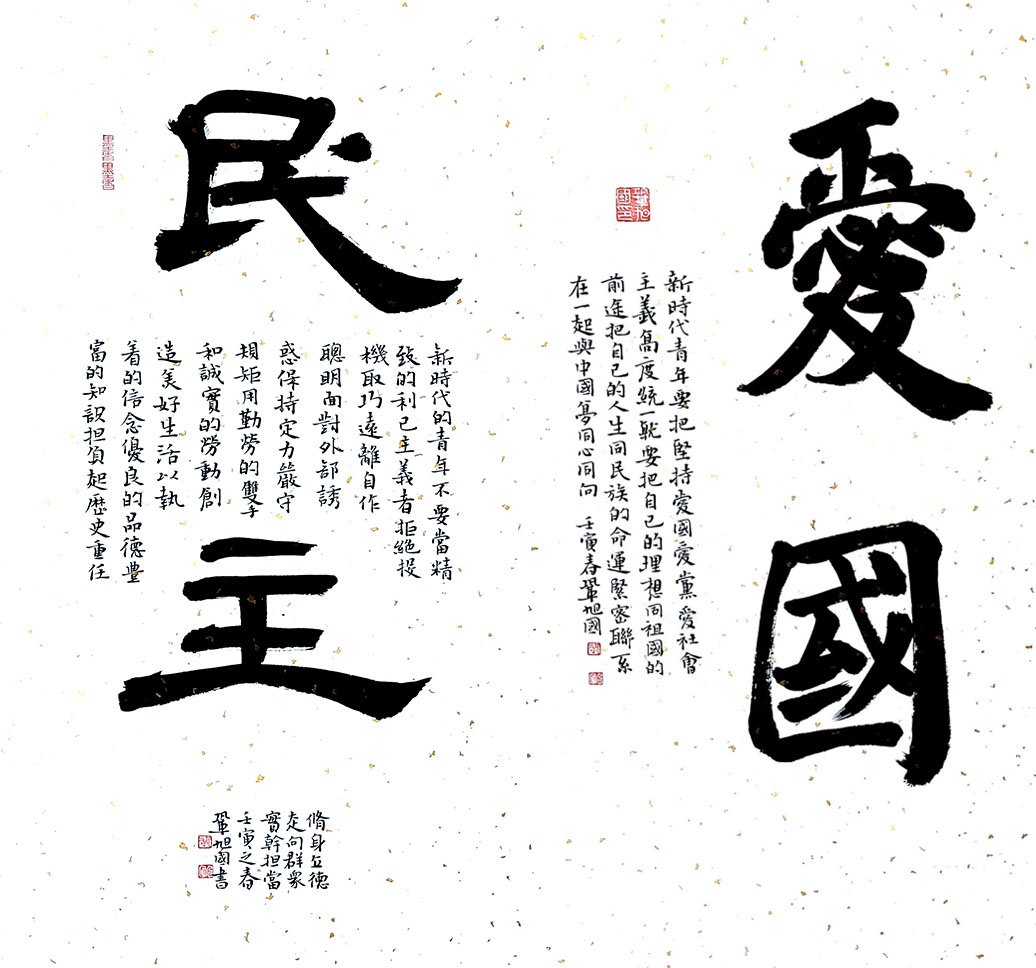 愛國
新時代青年要把堅持愛國愛黨愛社會
主義高度統一就要把自己的理想同祖國的
前途把自己的人生同民族的命運緊密聯系
在一起與中國夢同心同向 壬寅春鞏旭國
民主
新時代的青年不要當精
致的利己主義者拒絕投
機取巧遠離自作
聰明面對外部誘
惑保持定力嚴守
規矩用勤勞的雙手
和誠實的勞動創
造美好生活以執
着的信念優良的品德豐
富的知識担負起歷史重任
脩身立德
走向群眾
實幹担當
壬寅之春
鞏旭國書